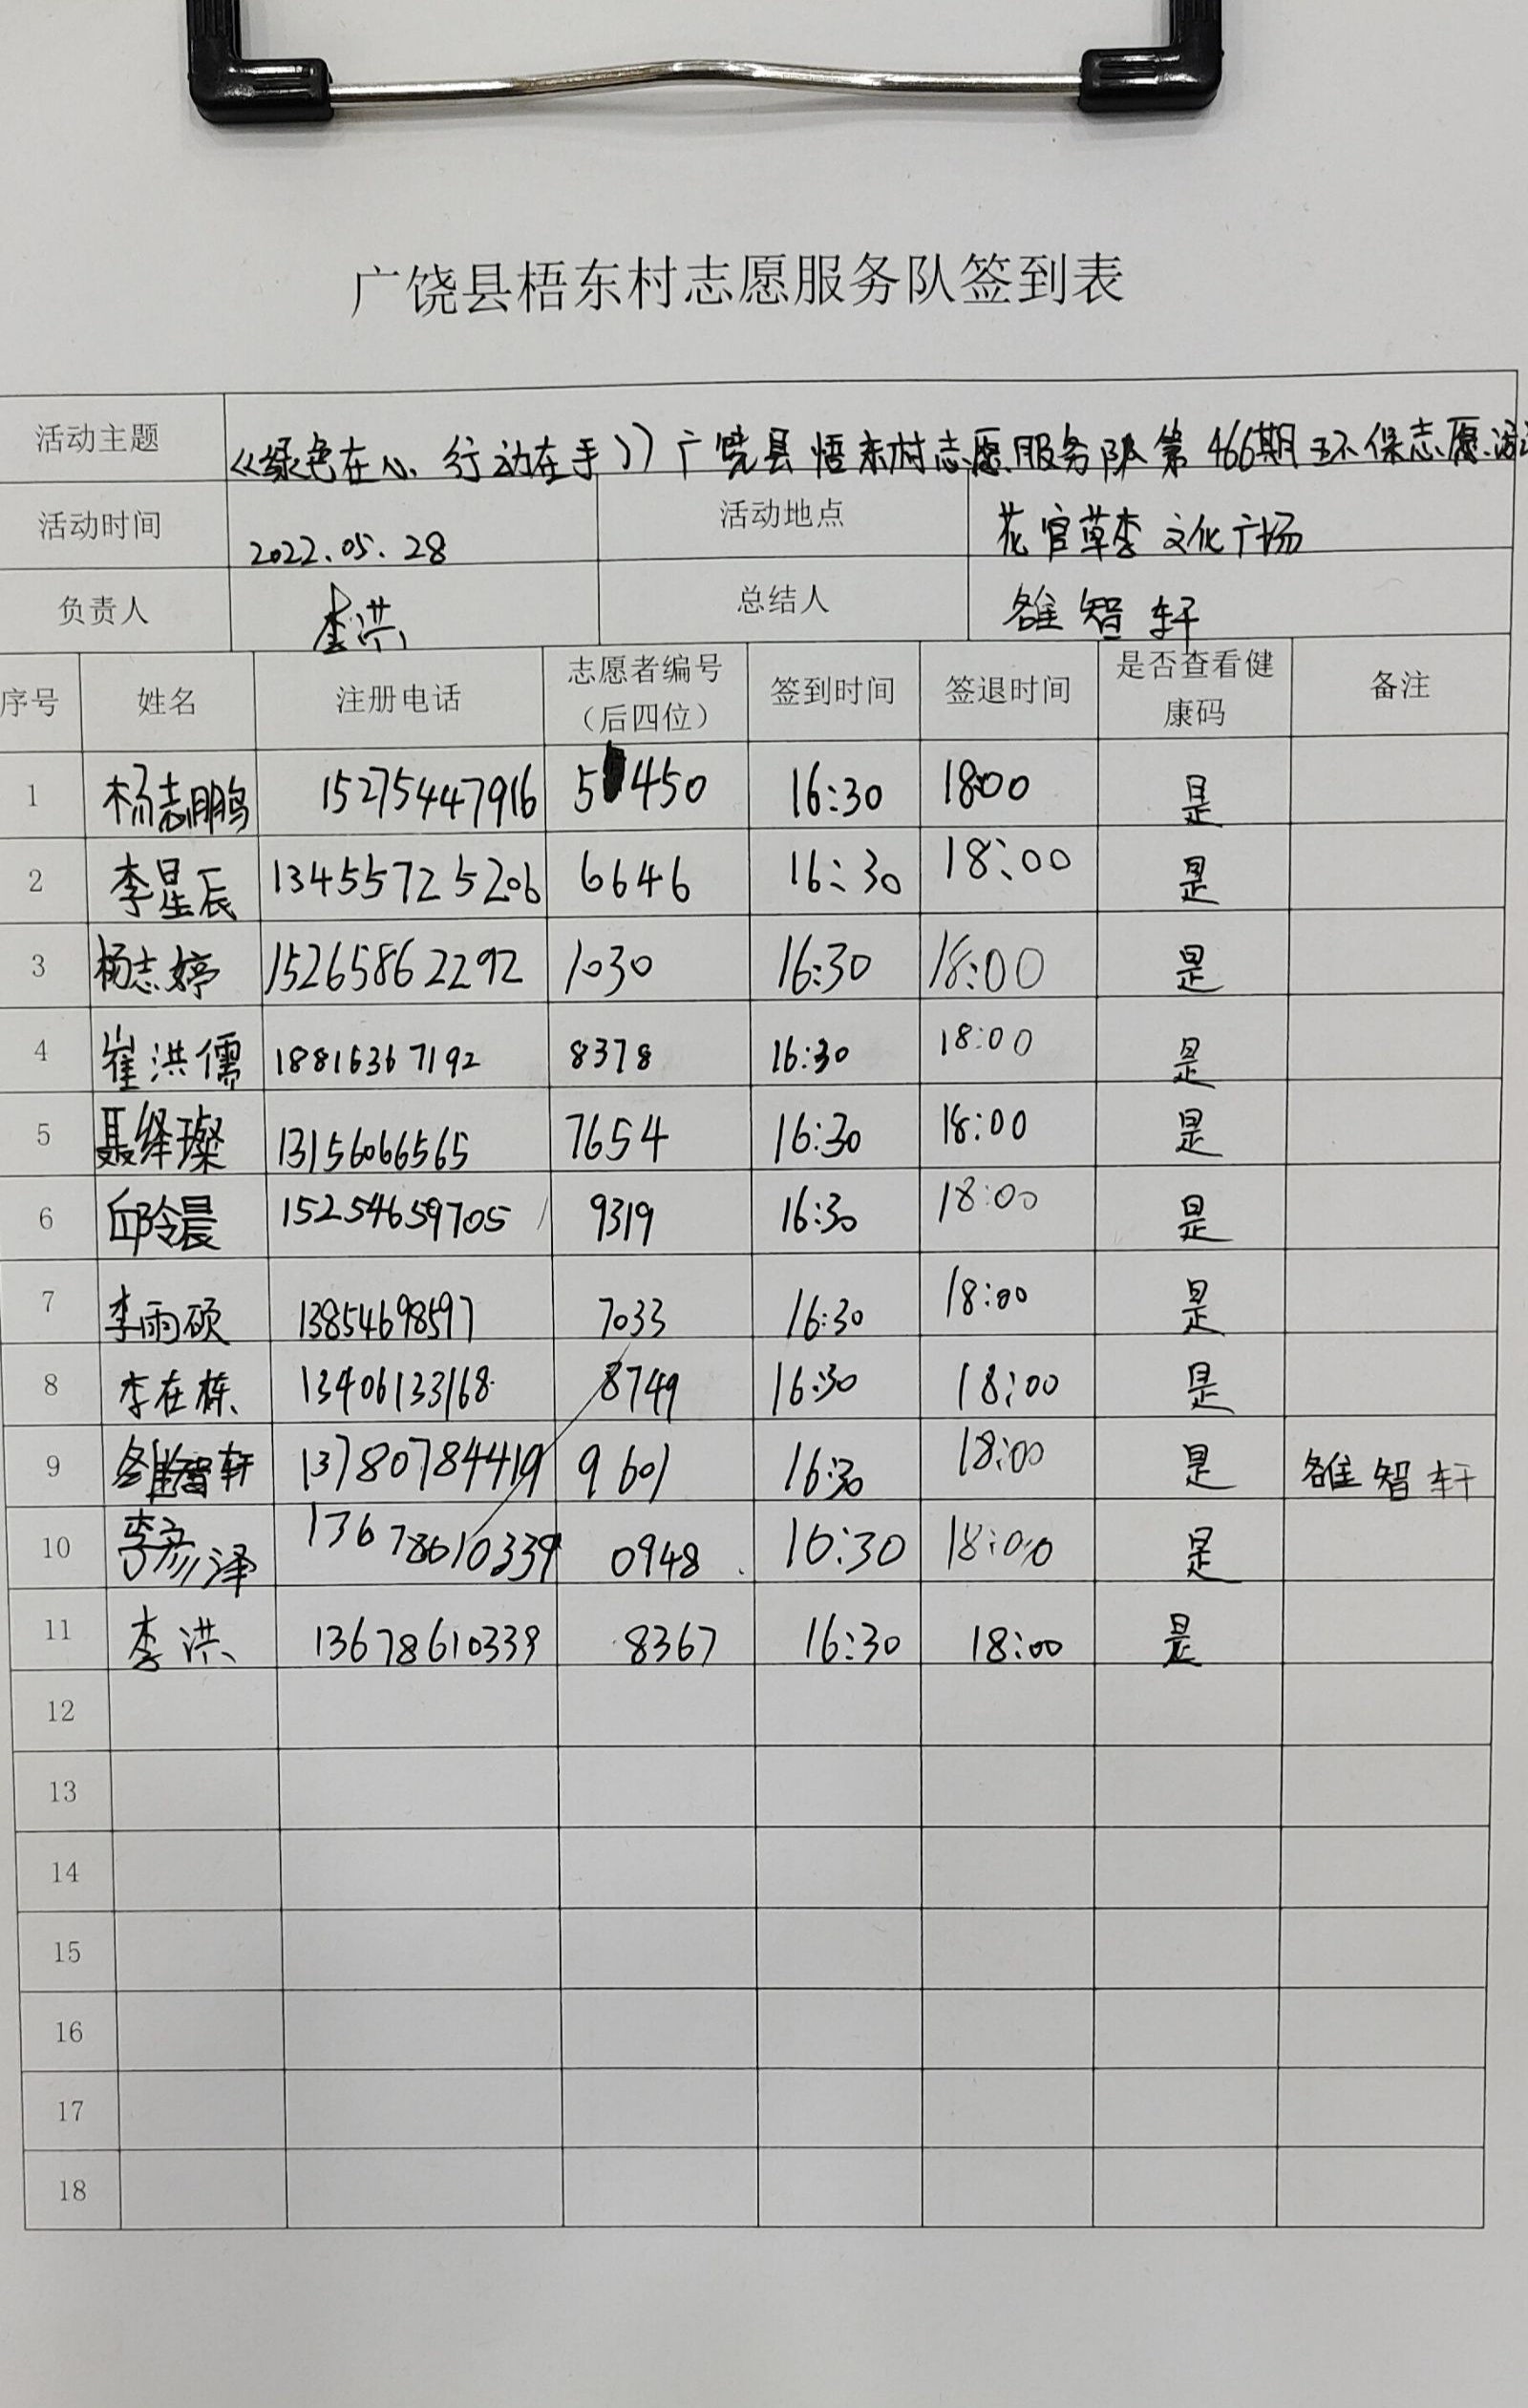 广饶县梧东村志愿服务队签到表
活动主题 《绿色在心、行动在手》广饶县悟东村志愿服务队第466期环保志愿活动
活动时间 2022.05.28 活动地点 花官草李文化广场
负责人 李洪 总结人 雒智轩
序号 姓名 注册电话 志愿者编号（后四位） 签到时间 签退时间 是否查看健康码 备注
1 杨志鹏 15275447916 5450 16:30 18:00 是
2 李星辰 13455725206 6646 16:30 18:00 是
3 杨志婷 15265862292 1030 16:30 18:00 是
4 崔洪儒 18816367192 8378 16:30 18:00 是
5 聂绎璨 13156066565 7654 16:30 18:00 是
6 邱冷晨 15254659705 9319 16:30 18:00 是
7 李雨硕 13854698597 7033 16:30 18:00 是
8 李在栋 13406133168 8749 16:30 18:00 是
9 雒智轩 13780784419 9601 16:30 18:00 是 雒智轩
10 李彦泽 13678610339 0948 16:30 18:00 是
11 李洪 13678610339 8367 16:30 18:00 是
12
13
14
15
16
17
18